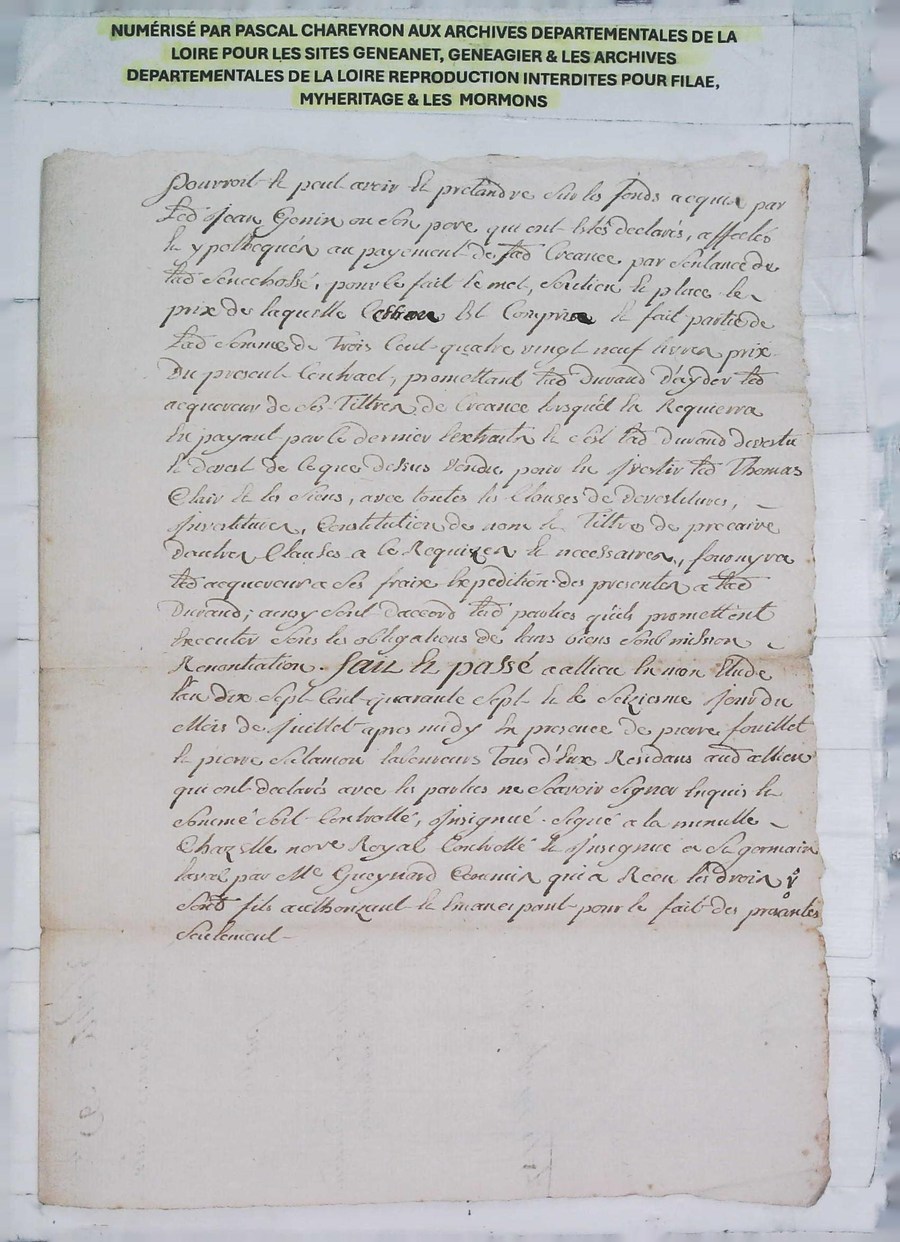 NUMÉRISÉ PAR PASCAL CHAREYRON AUX ARCHIVES DEPARTEMENTALES DE LA
LOIRE POUR LES SITES GENEANET, GENEAGIER & LES ARCHIVES
DEPARTEMENTALES DE LA LOIRE REPRODUCTION INTERDITES POUR FILAE,
MYHERITAGE & LES MORMONS
pourroit et peut avoir et pretandre sur les fonds acquis par
led Jean Genin ou son pere, qui ont Estés declarés, affectés
et ypothequés au payement de lad Creance par sentance de
lad senechossé, pour le fait le met, soutien et place le
prix de laquelle Cession Est Comprise et fait partie de
Lad somme de Trois Cent quatre vingt neuf livres prix
Du present Contract, promettant led Durand d'ayder led
acquereur de ses Tiltres de Creance lorsquil En Requierra
En payant par le dernier lextraits et s'est led Durand devestu
et devest de ce que dessus vendu pour En Jnvestir led Thomas
Clair et les siens, avec toutes les Clauses de devestitures,
Jnvestitures, Constitution de nom et Tiltre de precaire
Dautres Clauses a ce Requizes et necessaires, fournyra
led acquereur a ses fraix Expedition des presentes a led
Durand; ainsy sont daccord lesd parties qu'ils promettent
Executer sous les obligations de leurs biens soubmission
Renontiation. fait Et passé a allieu En mon Etude
L'an dix sept Cent quarante sept Et le seizieme Jour du
Mois de Juillet apres midy En presence de pierre fouillet
Et pierre laboureurs Tous d'Eux Residans aud allieu
qui ont declarés avec les parties ne scavoir signer Enquis Et
sommé soit Controllé, Jnsignué. signé a la minutte
Chazelle no.re Royal Controllé Et Jnsignué a St germain
laval par Me Gueynard Commis qui a Receu les droits
sond fils authorizant Et Emancipant pour le fait des presantes
seulement